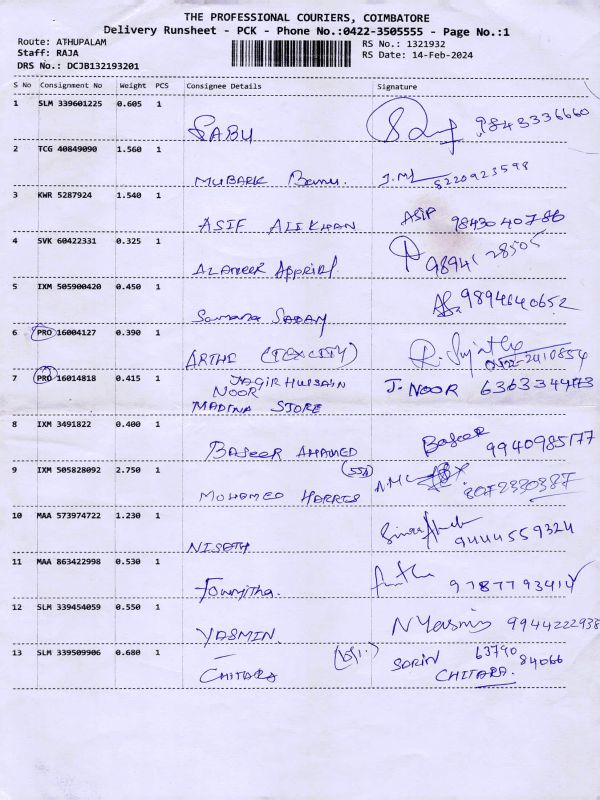 THE PROFESSIONAL COURIERS, COIMBATORE
Delivery Runsheet - PCK - Phone No.:0422-3505555 - Page No.:1
Route: ATHUPALAM RS No.: 1321932
Staff: RAJA RS Date: 14-Feb-2024
DRS No.: DCJB132193201
S No Consignment No Weight PCS Consignee Details Signature
1 SLM 339601225 0.605 1
SABU 9843336660
2 TCG 40849090 1.560 1
MUBARK Banu. 8220923598
3 KWR 5287924 1.540 1
ASIF ALI KHAN ASIF 9843040786
4 SVK 60422331 0.325 1
98941 28505
5 IXM 505900420 0.450 1
9894640652
6 PRO 16004127 0.390 1
ARTHI (TEX CITY) 0422-2410854
7 PRO 16014818 0.415 1
JAGIR HUSSAIN
NOOR J. NOOR
MADINA STORE
8 IXM 3491822 0.400 1
BASEER AHAMED Baseer 9940985177
9 IXM 505828092 2.750 1
MOHAMED HARRIS
10 MAA 573974722 1.230 1
9444559324
11 MAA 863422998 0.530 1
9787793414
12 SLM 339454059 0.550 1
YASMIN N Yasmin 9944222938
13 SLM 339509906 0.680 1
63790
84066
CHITARA CHITARA.